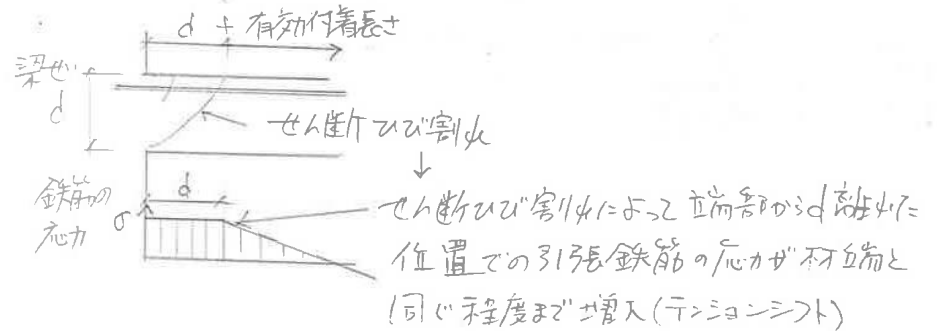 d + 有効付着長さ
梁せい
d
せん断ひび割れ
↓
d
鉄筋の
応力
σ
せん断ひび割れによって端部からd離れた
位置での引張鉄筋の応力が材端と
同じ程度まで増大(テンションシフト)